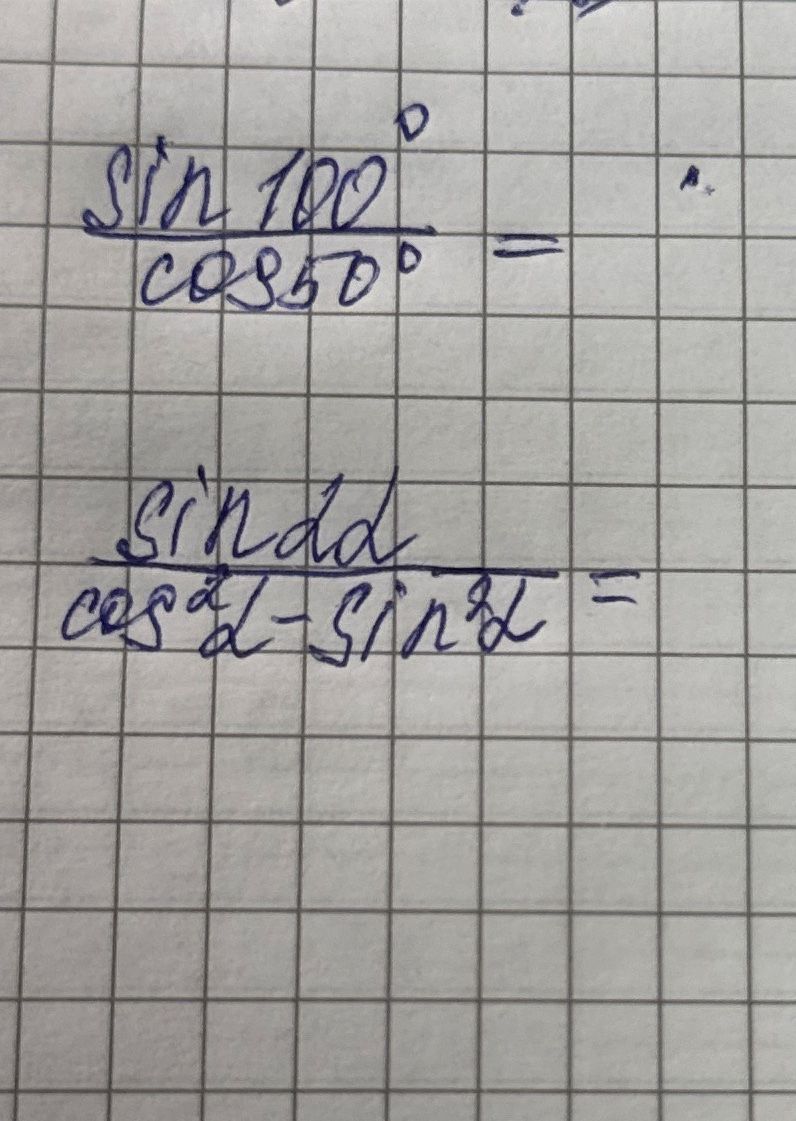 sin 100°
cos 50° =
sin 2α
cos²α - sin²α =